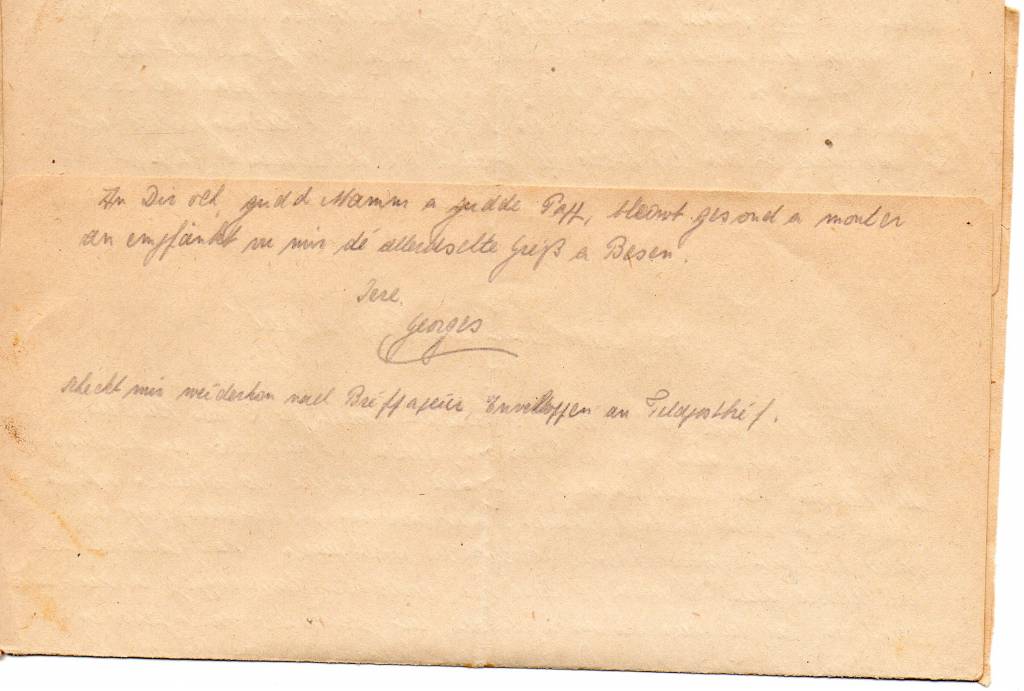 An Dir och, gudd Mamm a gudde Papp, bleiwt gesond a monter
an empfänkt vu mir dé allerbeschte Gréß a Besen.
Iere
Georges
Scheckt mir weiderhon nach Bréffapeier, Enveloppen an Feldpostbréf.